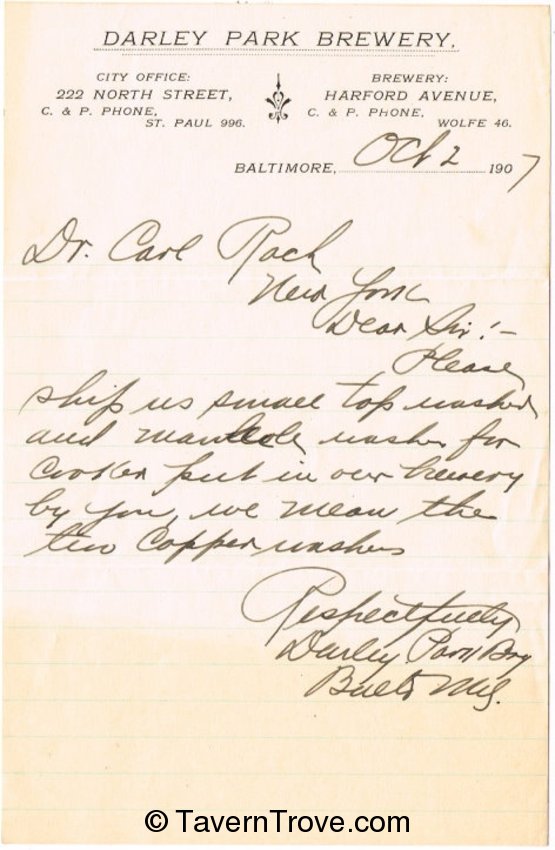 DARLEY PARK BREWERY,
CITY OFFICE:
222 NORTH STREET,
C. & P. PHONE,
ST. PAUL 996.
BREWERY:
HARFORD AVENUE,
C. & P. PHONE,
WOLFE 46.
BALTIMORE, Oct 2 1907
Dr. Carl Rach
New York
Dear Sir! –
Please
ship us small top washer
and manhole washer for
Cooker put in our brewery
by you, we mean the
two Copper washers
Respectfully
Darley Park Bry
Balto Md.
© TavernTrove.com